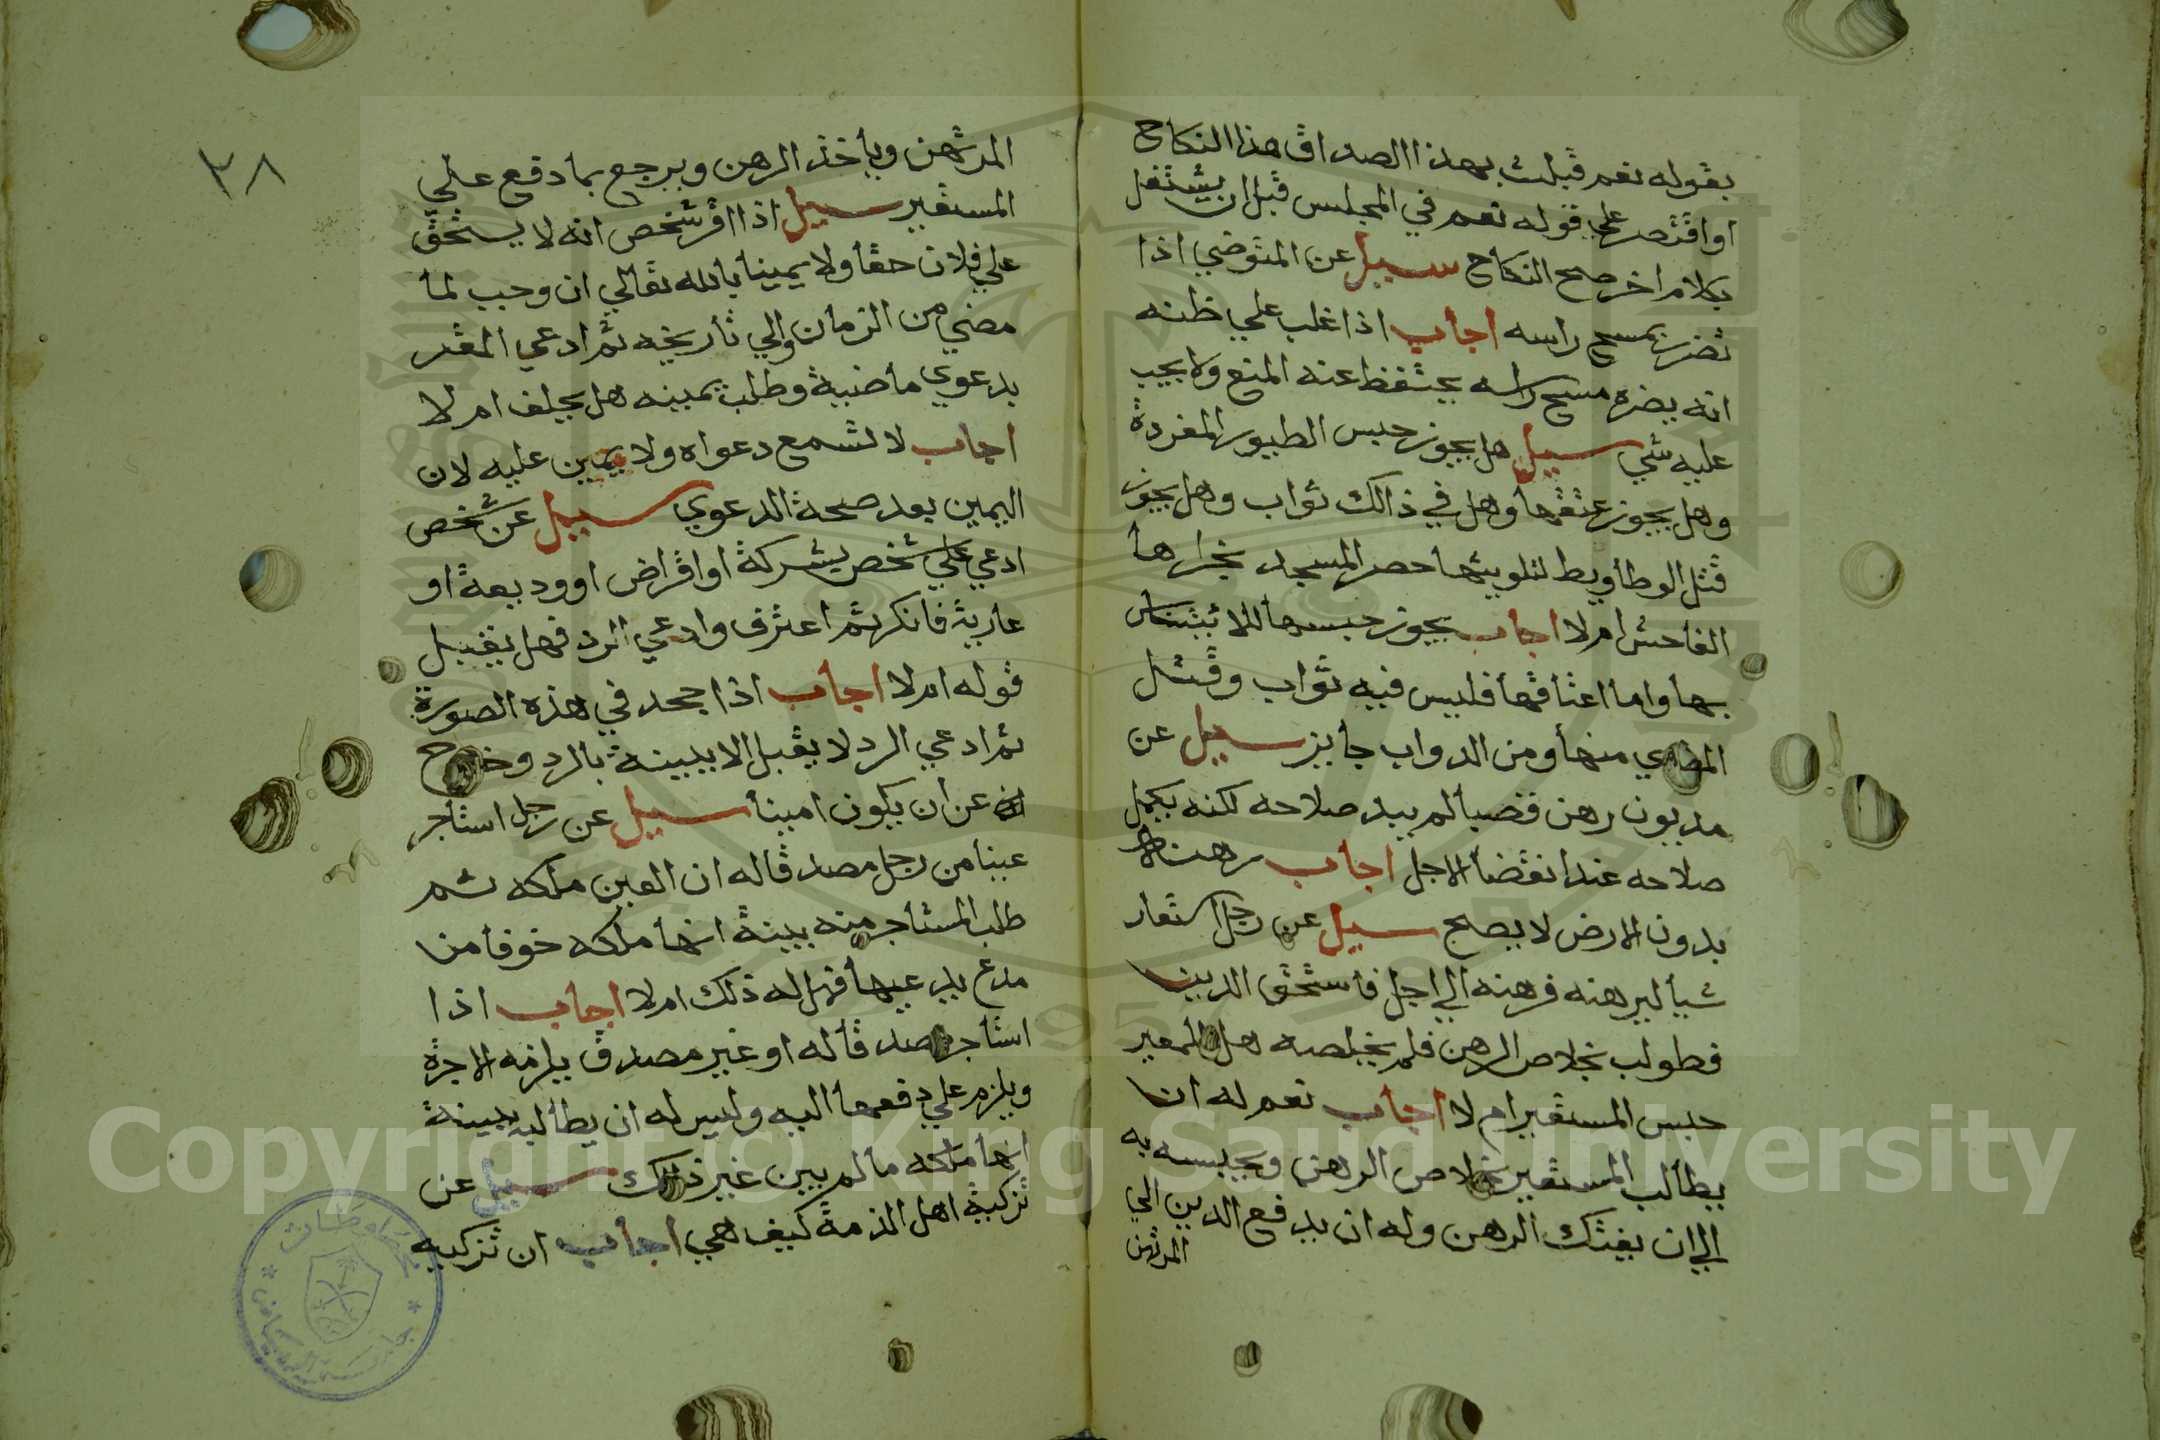 بقوله نعم قبلت بهذا الصداق هذا النكاح
او اقتصر علي قوله نعم في المجلس قبل ان يشتغل
بكلام اخر صح النكاح سيل عن المتوضي اذا
تضرر بمسح راسه اجاب اذا غلب علي ظنه
انه يضره مسح راسه عنه المنع ولا يجب
عليه شي سيل هل يجوز حبس الطيور المغردة
وهل يجوز عتقها وهل في ذالك ثواب وهل يجوز
قتل الوطاويط لتلويثها حصر المسجد بخرارها
الفاحش ام لا اجاب يجوز حبسها
بها واما اعتاقها فليس فيه ثواب وقتل
الموذي منها ومن الدواب جايز سيل عن
مديون رهن قصبا لم يبد صلاحه لكنه يكمل
صلاحه عند انقضا الاجل اجاب رهنه
بدون الارض لا يصح سيل عن رجل استعار
شيا ليرهنه فرهنه الي اجل فاستحق الدين
فطولب بخلاص الرهن فلم يخلصه هل للمعير
حبس المستعير ام لا اجاب نعم له ان
يطالب المستعير بخلاص الرهن ويحبسه به
الي ان يفتك الرهن وله ان يدفع الدين الي
المرتهن
٣٨
المرتهن وياخذ الرهن ويرجع بما دفع علي
المستعير سيل اذا اقر شخص انه لا يستحق
علي فلان حقا ولا يمينا بالله تعالي ان وجب لما
مضي من الزمان والي تاريخه ثم ادعي المقر
بدعوي ماضية وطلب يمينه هل يحلف ام لا
اجاب لا تسمع دعواه ولا يمين عليه لان
اليمين بعد صحة الدعوي سيل عن شخص
ادعي علي شخص بشركة او اقراض او وديعة او
عارية فانكر ثم اعترف وادعي الرد فهل يقبل
قوله ام لا اجاب اذا جحد في هذه الصورة
ثم ادعي الرد لا يقبل الا ببينة بالرد وخرج
عن ان يكون امينا سيل عن رجل استاجر
عينا من رجل مصدقا له ان العين ملكه ثم
طلب المستاجر منه بينة انها ملكه خوفا من
مدع يدعيها فهل له ذلك ام لا اجاب اذا
استاجر مصدقا له او غير مصدق يلزمه الاجرة
ويلزم علي دفعها اليه وليس له ان يطالبه ببينة
انها ملكه ما لم يبين غير ذلك سيل عن
تزكية اهل الذمة كيف هي اجاب ان تزكيه
Copyright © King Saud University